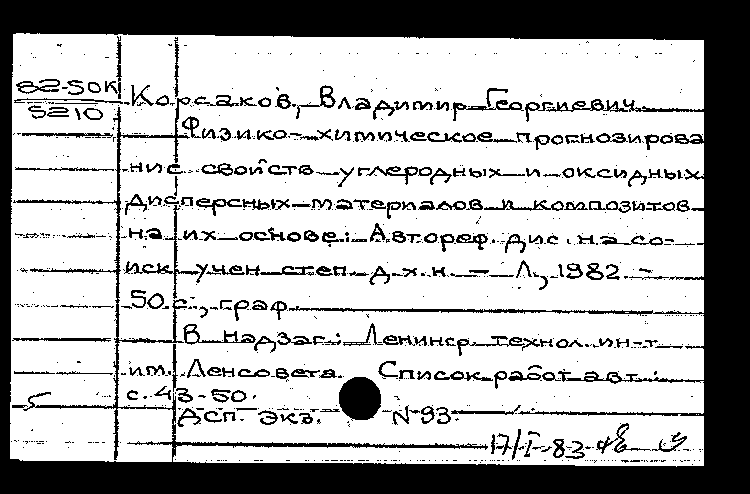 82-50К
5210
Корсаков, Владимир Георгиевич.
Физико-химическое прогнозирова
ние свойств углеродных и оксидных
дисперсных материалов и композитов
на их основе: Автореф. дис. на со-
иск. учен степ. д.х.н. — Л., 1982. -
50 с., граф.
В надзаг.: Ленингр. технол. ин-т
им. Ленсовета. Список работ авт.:
с. 43-50.
5
ДСП. экз. N 93.
17/I-83-